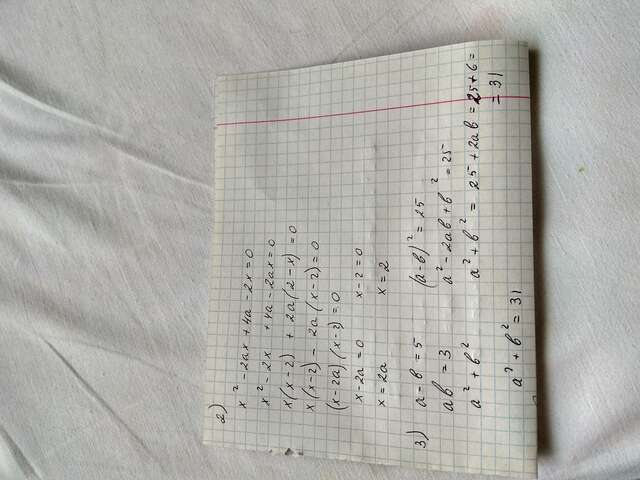 2)
x² - 2ax + 4a - 2x = 0
x² - 2x + 4a - 2ax = 0
x(x-2) + 2a(2-x) = 0
x(x-2) - 2a(x-2) = 0
(x-2a)(x-2) = 0
x - 2a = 0 x - 2 = 0
x = 2a x = 2
3) a - b = 5 (a-b)² = 25
ab = 3 a² - 2ab + b² = 25
a² + b² a² + b² = 25 + 2ab = 25 + 6 =
= 31
a² + b² = 31